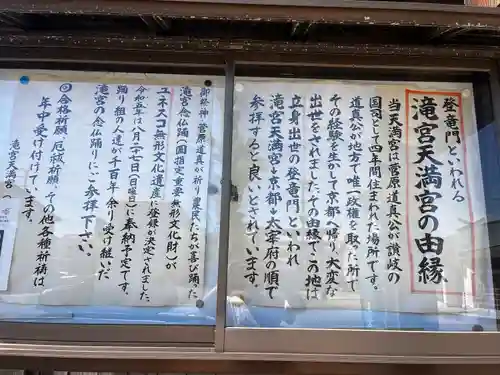 登竜門といわれる
滝宮天満宮の由縁
当天満宮は菅原道真公が讃岐の
国司として四年間住まれた場所です。
道真公が地方で唯一政権を取った所で
その経験を生かして京都へ帰り大変な
出世をされました。その縁でこの地は
立身出世の登竜門といわれ
滝宮天満宮→京都→太宰府の順で
参拝すると良いとされています。
御祭神 菅原道真が祈り農民たちが喜び踊った
滝宮念仏踊(国指定重要無形文化財)が
ユネスコ無形文化遺産に登録が決定されました
令和五年は八月二十七日(日曜日)に奉納予定です。
踊り組の人達が千百年余り受け継いだ
滝宮の念仏踊りにご参拝下さい。
◎合格祈願、厄祓祈願、その他各種祈祷は
年中受け付けています。
滝宮天満宮